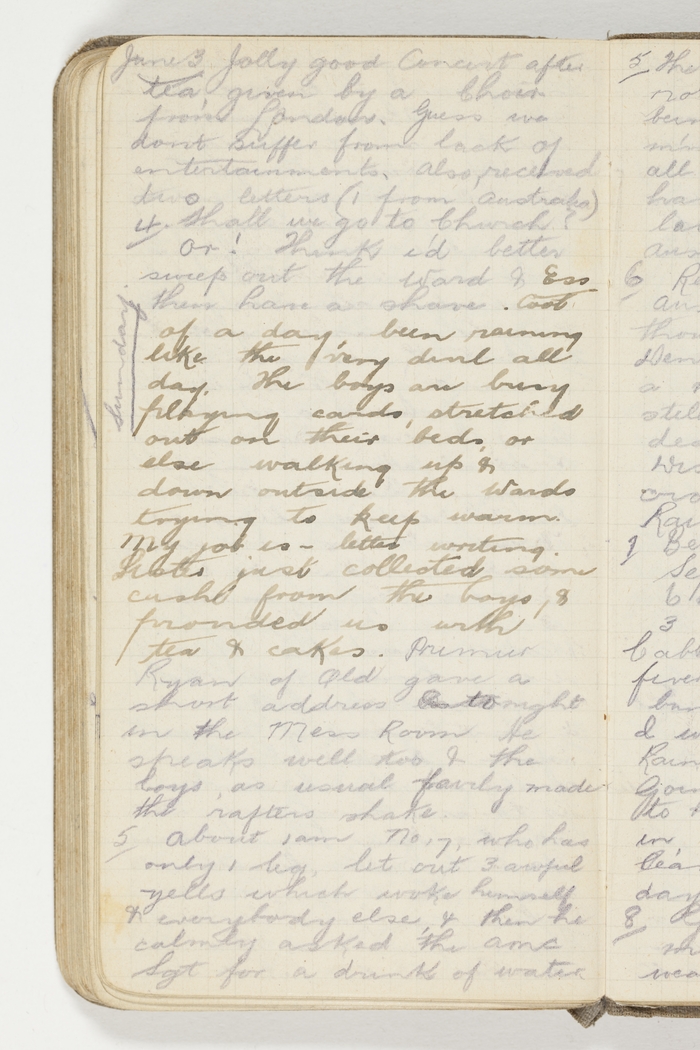 June 3 Jolly good Concert after
tea given by a Choir
from London. Guess we
dont suffer from lack of
entertainments. Also received
two letters (1 from Australia)
4. Shall we go to Church?
Or! Think i'd better
sweep out the Ward &
then have a shave.
Sunday
of a day. been raining
like the very devil all
day. The boys are busy
playing cards, stretched
out on their beds, or
else walking up &
down outside the Wards
trying to keep warm.
My job is - letter writing.
just collected some
cash from the boys, &
provided us with
tea & cakes. Premier
Ryan of Qld gave a
short address tonight
in the Mess Room He
speaks well too & the
boys, as usual made
the rafters shake.
5 About 1am No. 7, who has
only 1 leg, let out 3 awful
yells which woke himself
& everybody else, & then he
calmly asked the amc
Sgt for a drink of water
5 The
all
6
8